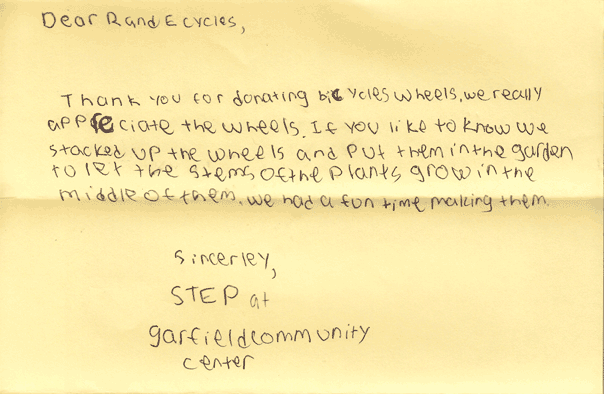 Dear R and E cycles,
Thank you for donating bicycles wheels. we really
appreciate the wheels. If you like to know we
stacked up the wheels and put them in the garden
to let the stems of the plants grow in the
middle of them. we had a fun time making them.
Sincerley,
STEP at
garfield community
center